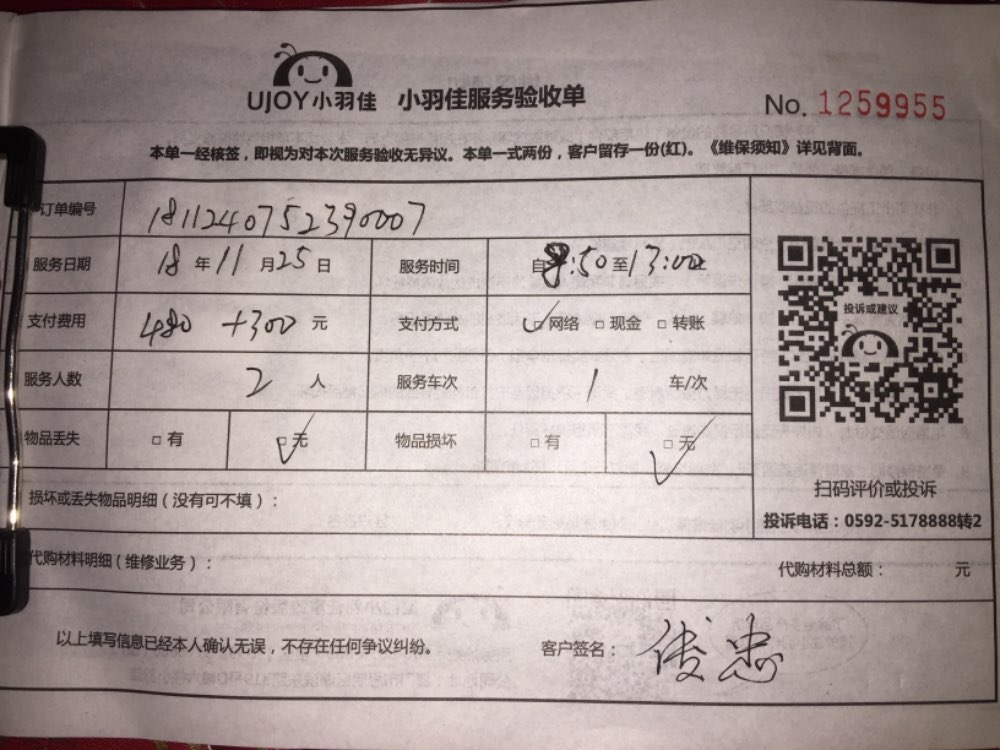 UJOY小羽佳 小羽佳服务验收单 No. 1259955
本单一经核签，即视为对本次服务验收无异议。本单一式两份，客户留存一份(红)。《维保须知》详见背面。
订单编号 1811240752390007
服务日期 18 年 11 月 25 日 服务时间 自 8:50 至 13:00
支付费用 480 +300 元 支付方式 ☑网络 □现金 □转账
服务人数 2 人 服务车次 1 车/次
物品丢失 □有 ☑无 物品损坏 □有 ☑无
投诉或建议
扫码评价或投诉
投诉电话：0592-5178888转2
损坏或丢失物品明细（没有可不填）：
代购材料明细（维修业务）： 代购材料总额： 元
以上填写信息已经本人确认无误，不存在任何争议纠纷。 客户签名：